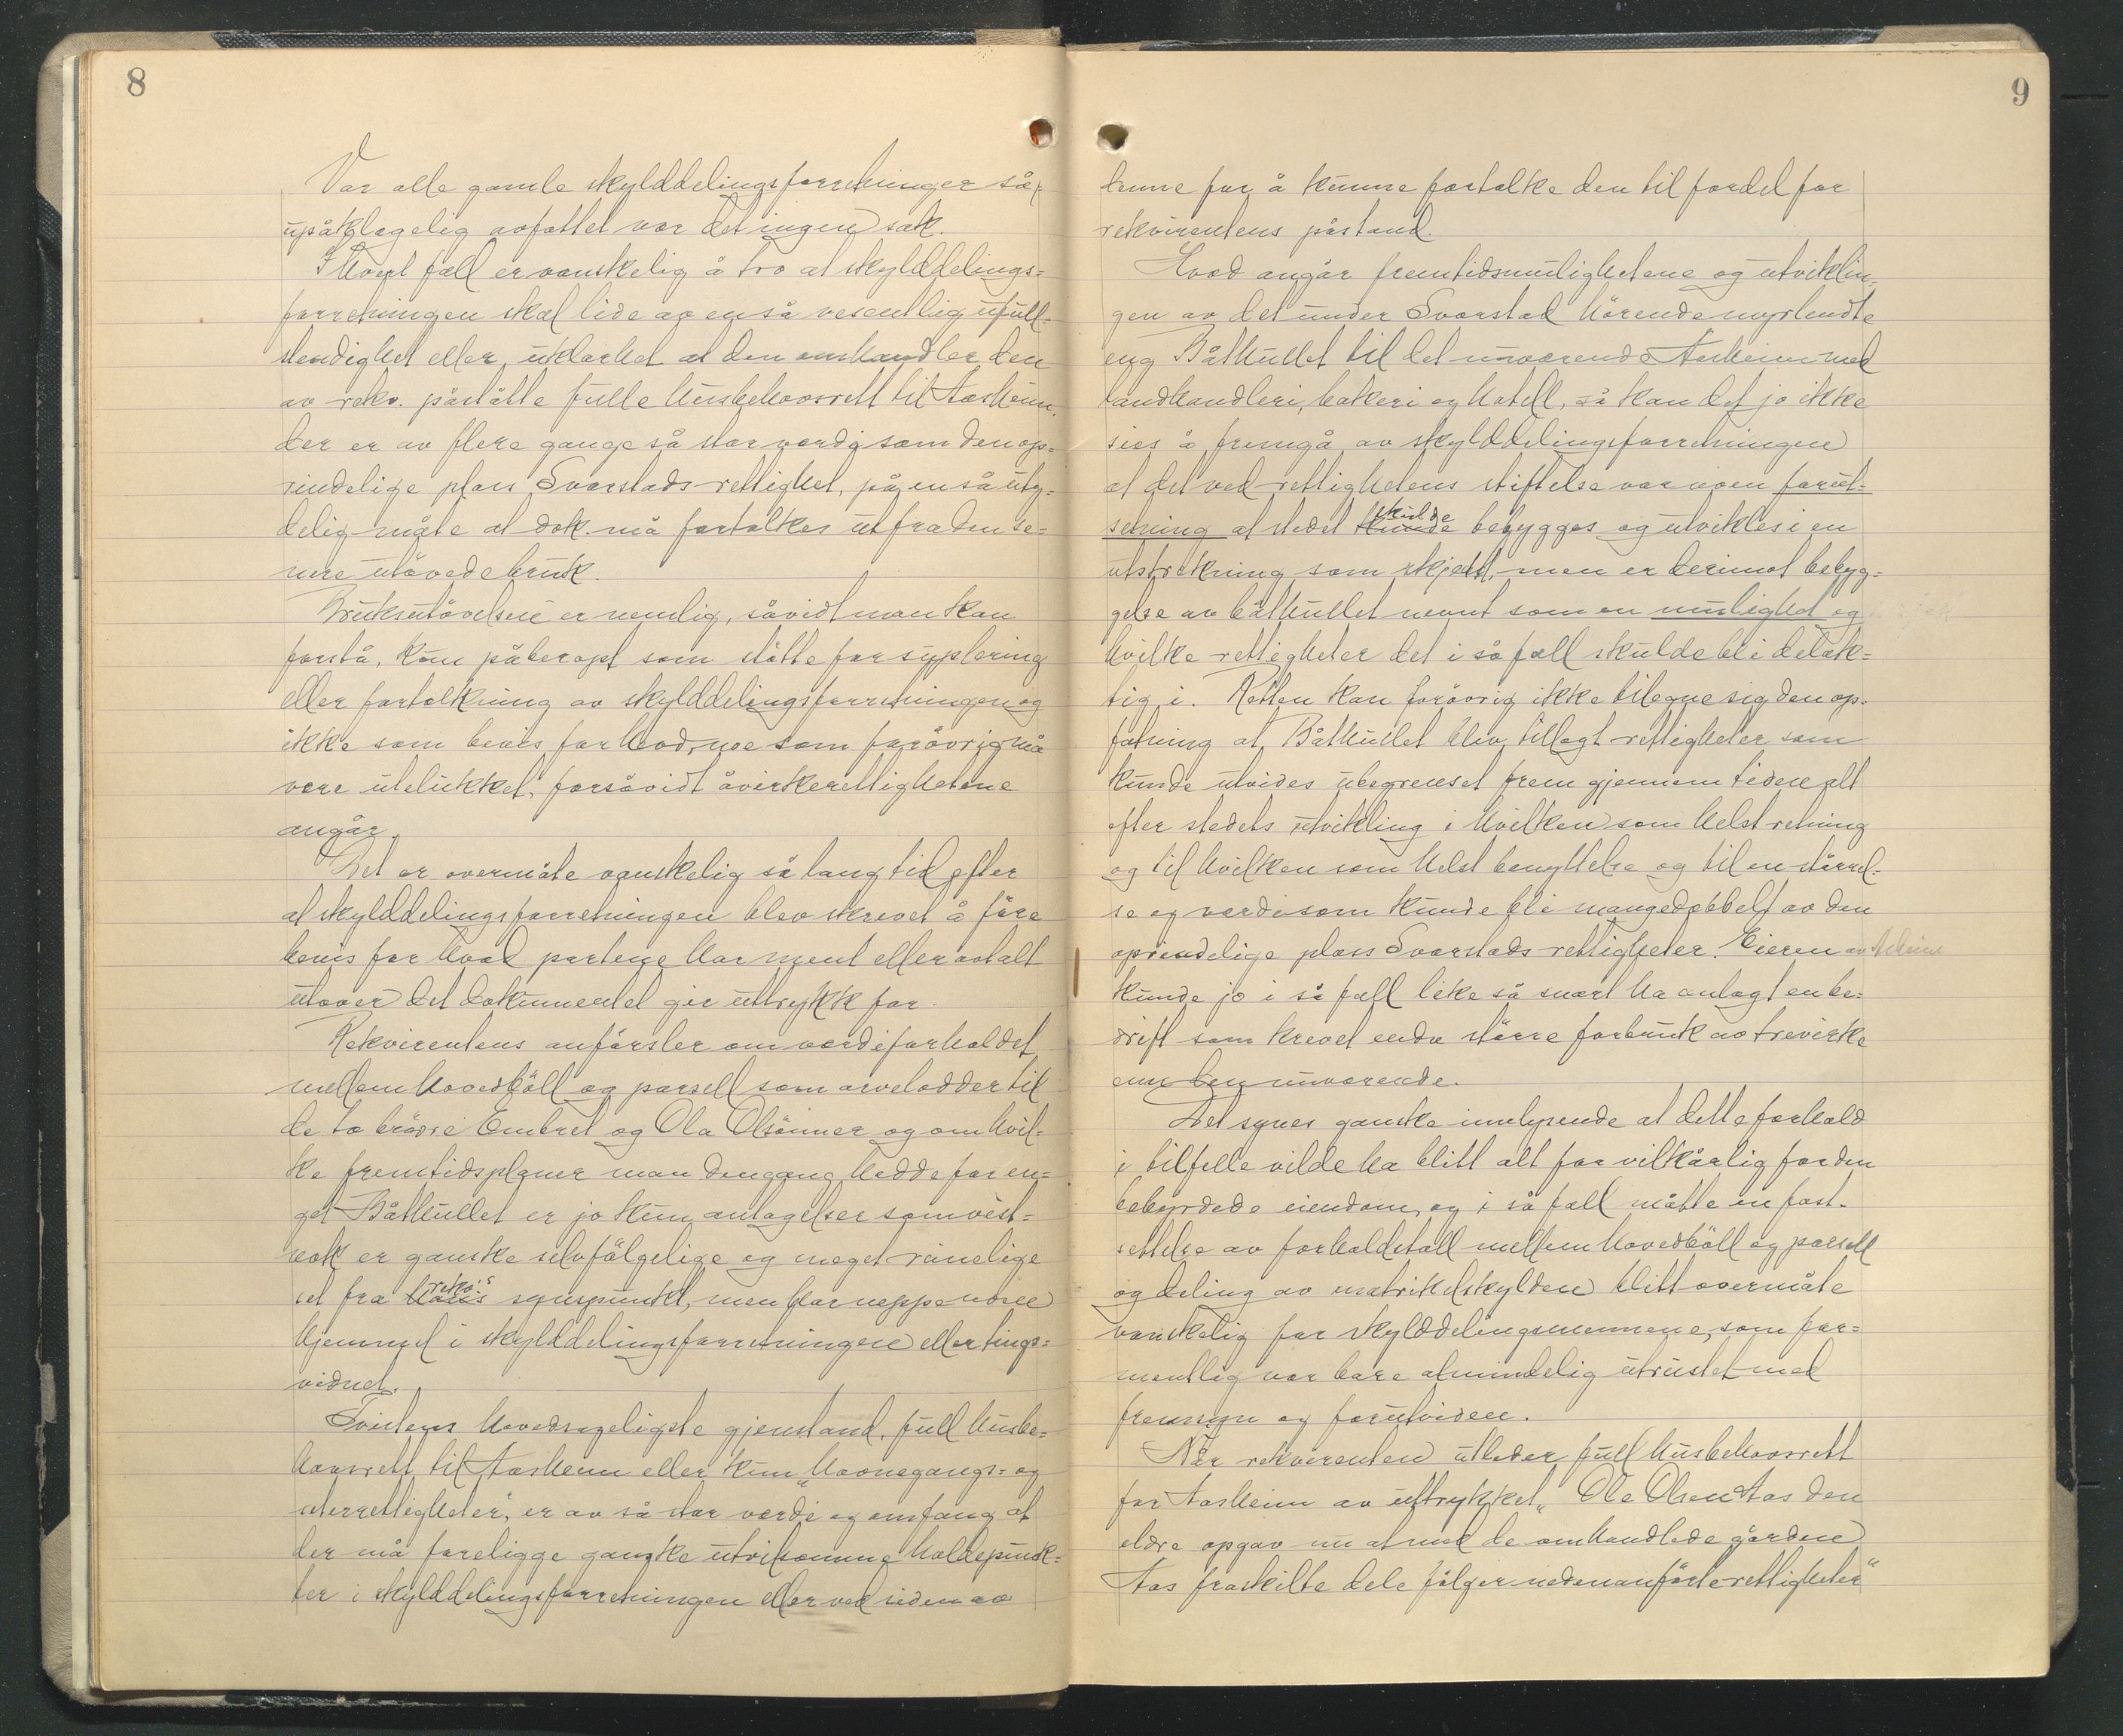 8
Var alle gamle skylddelingsforretninger så
upåklagelig avfattet var det ingen sak.
I hvert fall er vanskelig å tro at skylddelings-
forretningen skal lide av en så vesentlig ufull-
stendighet eller uklarhet at den omhandler den
av rekv. påståtte fulle husbehovsrett til Aasheim,
der er av flere gange så stor verdi som den op-
rindelige plass Svarstads-rettighet, på en så uty-
delig måte at dok. må fortolkes ut fra den se-
nere utövede bruk.
Bruksutövelsen er nemlig, såvidt man kan
forstå, kun påberopt som stötte for supplering
eller fortolkning av skylddelingsforretningen og
ikke som bevis for hevd, noe som forövrig må
være utelukket, forsåvidt åvirkerettighetene
angår.
Det er overmåte vanskelig så lang tid efter
at skylddelingsforretningen blev skrevet å före
bevis for hvad partene har ment eller avtalt
utover det dokumentet gir uttrykk for.
Rekvirentens anförsler om verdiforholdet
mellem hovedböll og parsell som arvelodder til
de to brödre Embret og Ola Olsönner og om hvil-
ke fremtidsplaner man dengang hadde for en-
get Båthullet er jo kun antagelser som vist-
nok er ganske selvfölgelige og meget rimelige
set fra hans rekv.'s synspunkt, men har neppe noen
hjemmel i skylddelingsforretningen eller tings-
vidnet.
Tvistens hovedsageligste gjenstand, full husbe-
hovsrett til Aasheim eller kun „havnegangs- og
seterrettigheter", er av så stor verdi og omfang at
der må foreligge ganske utvilsomme holdepunk-
ter i skylddelingsforretningen eller ved siden av
9
denne for å kunne fortolke den til fordel for
rekvirentens påstand.
Hvad angår fremtidsmulighetene og utviklin-
gen av det under Svarstad hörende myrlendte
eng Båthullet til det nuværende Aasheim med
landhandleri, bakeri og hotell, så kan det jo ikke
sies å fremgå av skylddelingsforretningen
at det ved rettighetens stiftelse var noen forut-
setning at stedet kunde skulde bebygges og utvikles i en
utstrekning som skjedd, men er derimot bebyg-
gelse av båthullet nevnt som en mulighet og
hvilke rettigheter det i så fall skulde bli delak-
tig i. Retten kan forövrig ikke tilegne sig den op-
fatning at Båthullet blev tillagt rettigheter som
kunde utvides ubegrenset frem gjennem tiden alt
efter stedets utvikling i hvilken som helst retning
og til hvilken som helst benyttelse og til en störrel-
se og verdi som kunde bli mangedobbelt av den
oprindelige plass Svarstads rettigheter. Eieren av Asheim
kunde jo i så fall like så snart ha anlagt en be-
drift som krevet endu större forbruk av trevirke
enn den nuværende.
Det synes ganske innlysende at dette forhold
i tilfelle vilde ha blitt alt for vilkårlig for den
bebyrdede eiendom, og i så fall måtte en fast-
settelse av forholdstall mellem hovedböll og parsell
og deling av matrikelskylden blitt overmåte
vanskelig for skylddelingsmennene, som for-
mentlig var bare almindelig utrustet med
fremsyn og forutviden.
Når rekvirenten utleder full husbehovsrett
for Aasheim av uttrykket „Ole Olsen Aas den
eldre opgav nu at med de omhandlede gården
Aas fraskilte dele fölger nedenanförte rettigheter"